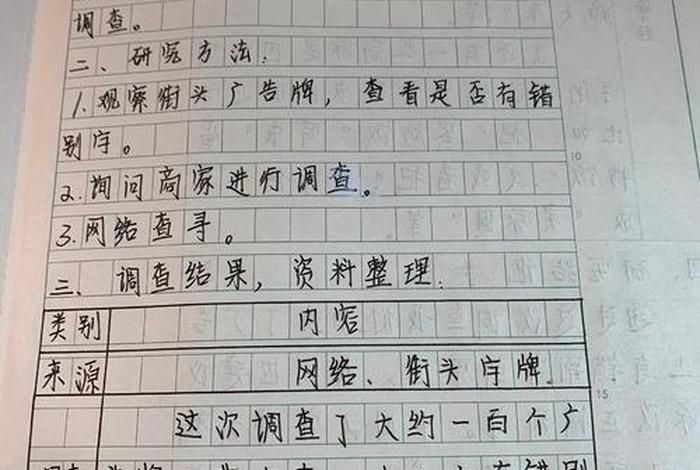 调查。
二、研究方法：
1.观察街头广告牌，查看是否有错
别字。
2.询问商家进行调查。
3.网络查寻。
三、调查结果，资料整理：
类别 内容
来源 网络、街头字牌.
这次调查了大约一百个广
10
15